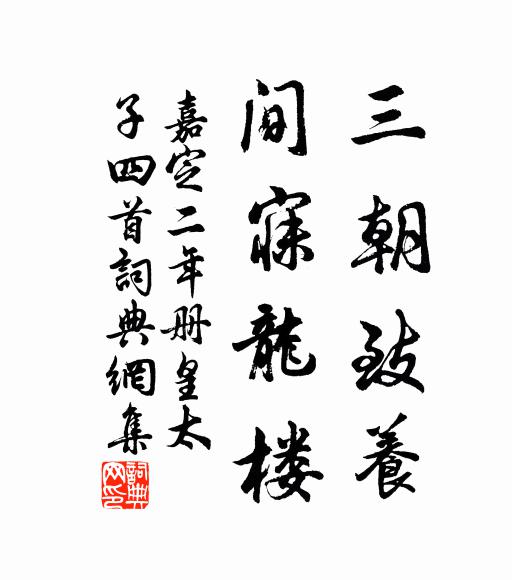 三朝致養
间寐龍楼
嘉定二年册皇太
子四首詞典網集
詞典
网印